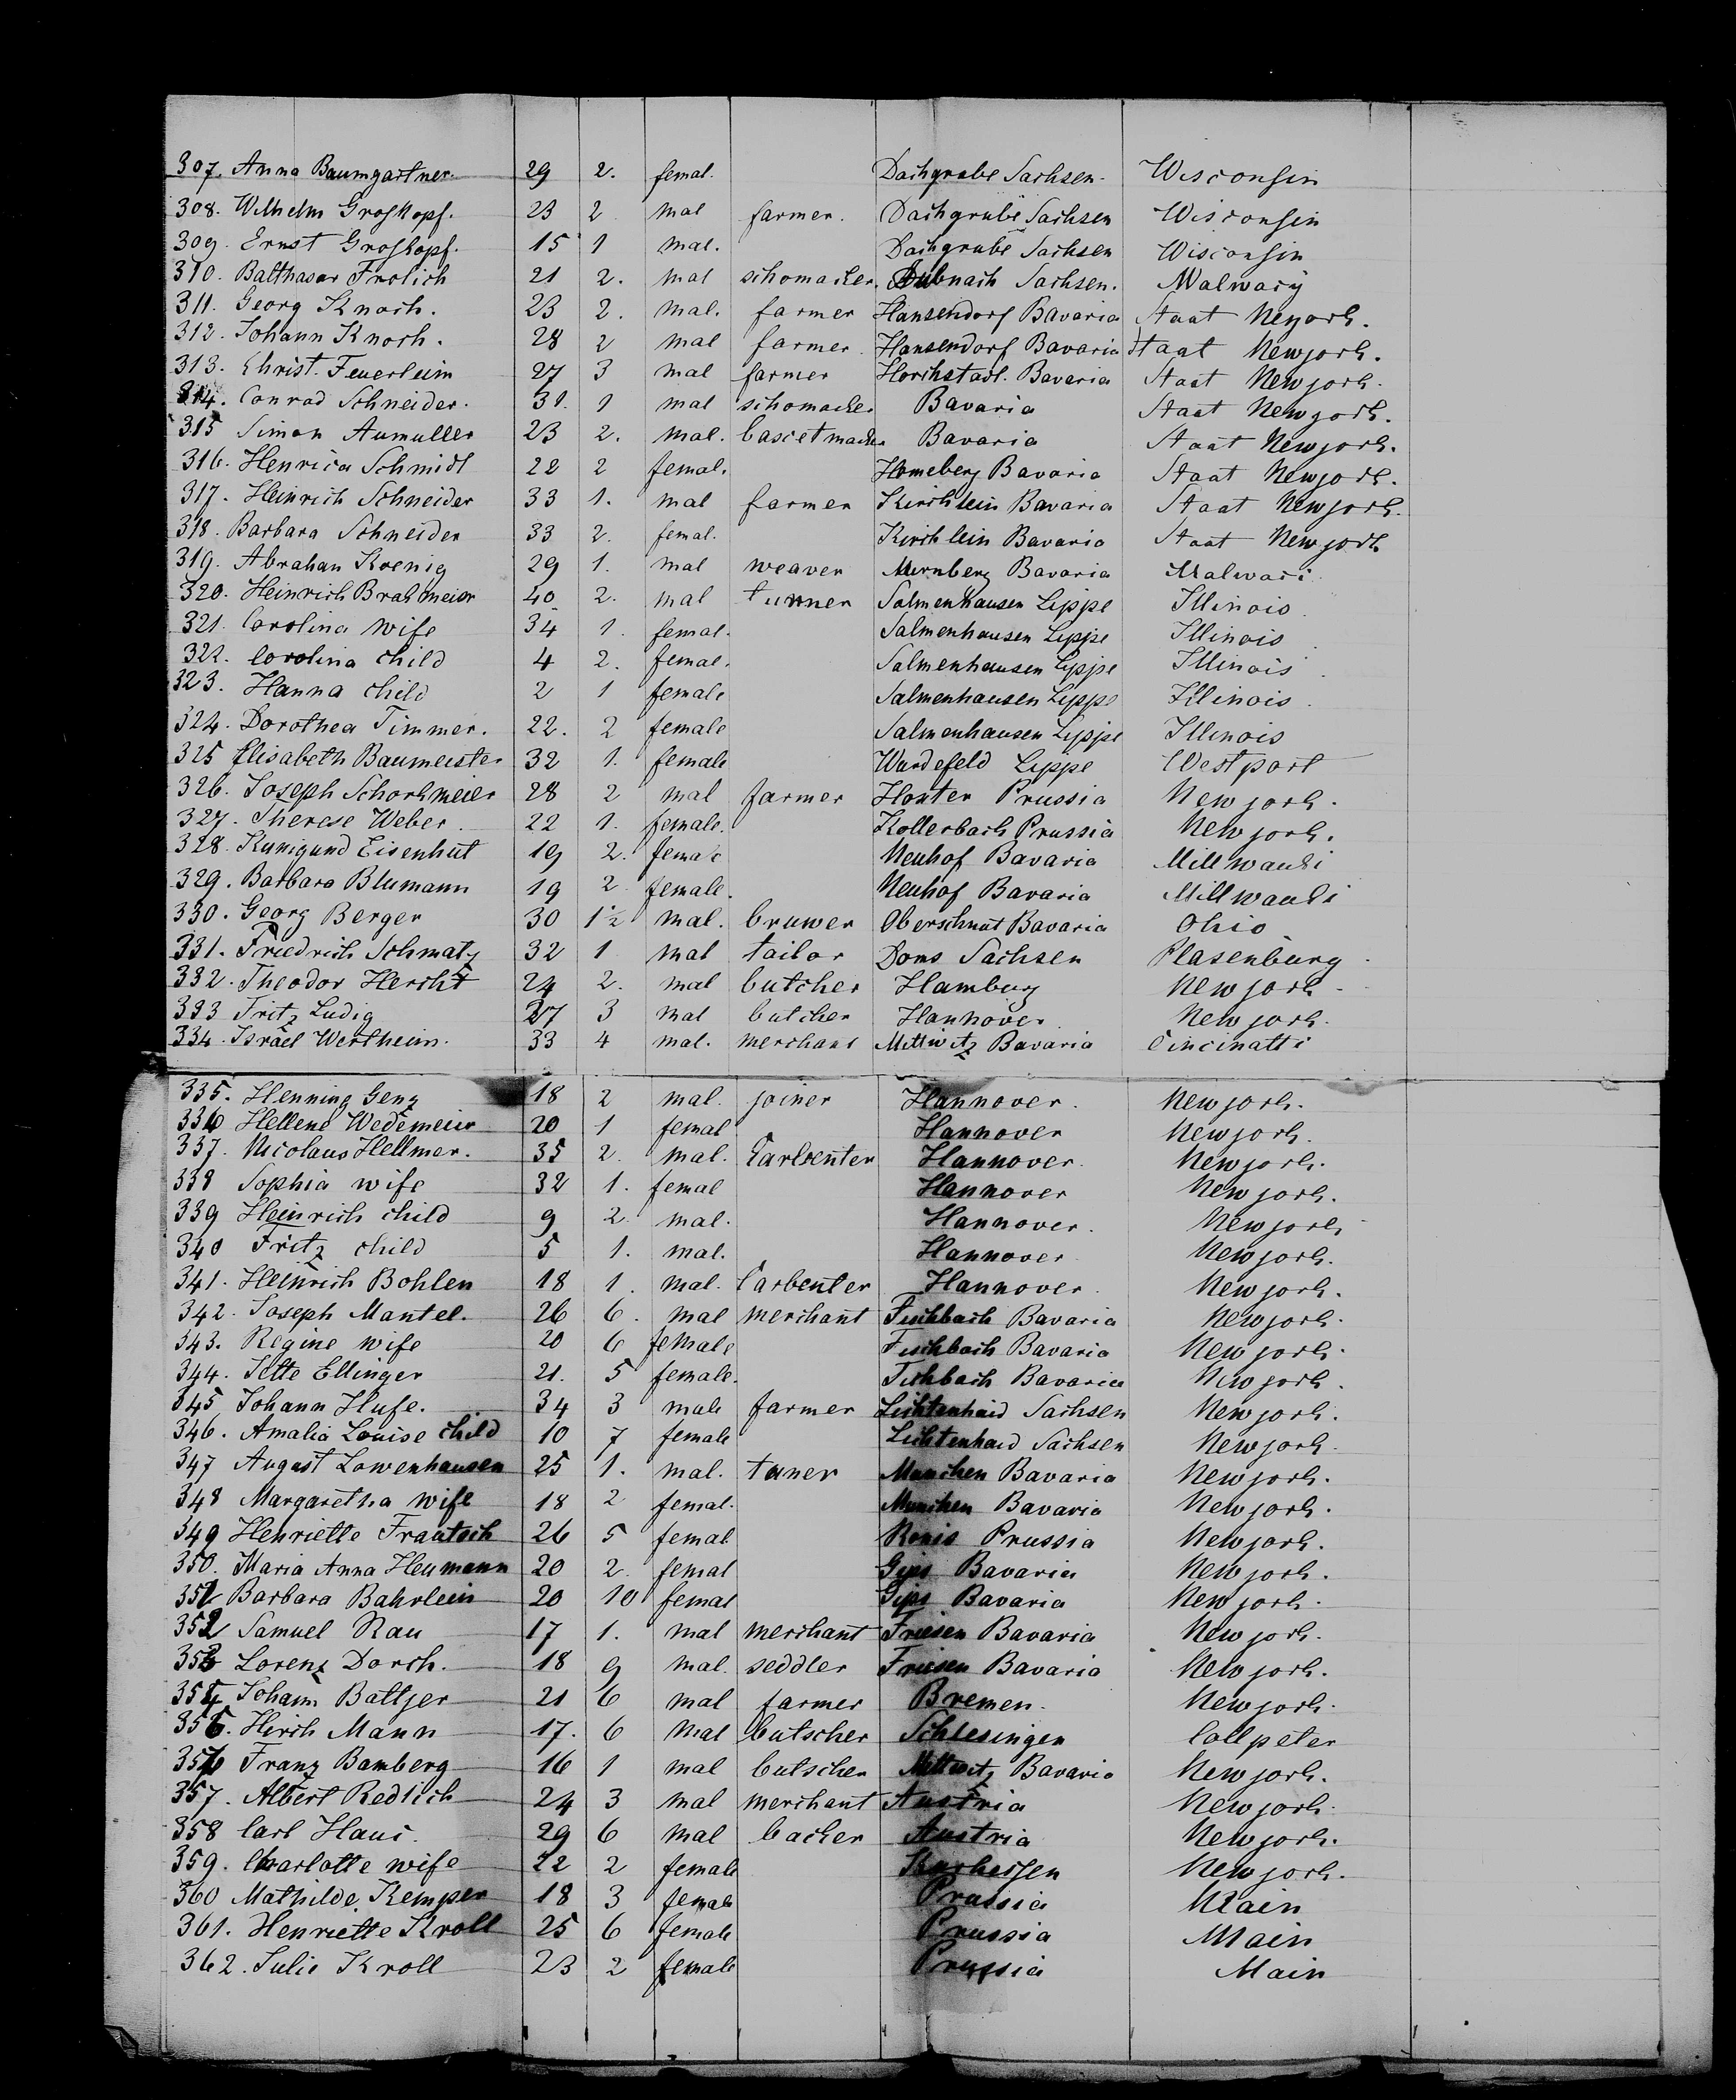 307. Anna Baumgartner. 29 2. femal. Dachgrube Sachsen. Wisconsin
308. Wilhelm Groskopf. 23 2 mal farmer. Dachgrube Sachsen Wisconsin
309. Ernst Groskopf. 15 1 mal. Dachgrube Sachsen Wisconsin
310. Balthasar Frolich 21 2. mal schomacker. Sachsen. Malwacy
311. Georg Knoch. 23 2. mal. farmer Hansendorf Bavaria Staat Neyork.
312. Johann Knoch. 28 2 mal farmer. Hansendorf Bavaria Staat Newjork.
313. Christ. Feuerleim 27 3 mal farmer Horchstadl. Bavaria Staat Newjork.
314. Conrad Schneider. 31. 1 mal schomacker Bavaria Staat Newjork.
315 Simon Aumuller 23 2. mal. bascetmacker Bavaria Staat Newjork.
316. Henrica Schmidt 22 2 femal. Homeberg Bavaria Staat Newjork.
317. Heinrich Schneider 33 1. mal farmer Kirchlein Bavaria Staat Newjork.
318. Barbara Schneider 33 2. femal. Kirchlein Bavaria Staat Newjork
319. Abrahan Koenig 29 1. mal weaver Nurnberg Bavaria Malwaci
320. Heinrich Brakmeier 40 2. mal turner Salmenhausen Lippe Illinois
321. Carolina wife 34 1. femal. Salmenhausen Lippe Illinois
322. Corolina child 4 2. femal. Salmenhausen Lippe Illinois
323. Hanna child 2 1 female Salmenhausen Lippe Illinois
324. Dorothea Timmer. 22. 2 female Salmenhausen Lippe Illinois
325 Elisabeth Baumeister 32 1. female Wardefeld Lippe Westport
326. Joseph Schorkmeier 28 2 mal farmer Hoxter Prussia Newjork.
327. Therese Weber 22 1. female. Kollerbach Prussia Newjork.
328. Kunigund Eisenhut 19 2. female Neuhof Bavaria Millwauki
329. Barbara Blumann 19 2 female. Neuhof Bavaria Millwauki
330. Georg Berger 30 1½ mal. bruwer Oberschnut Bavaria Ohio
331. Friedrich Schmatz 32 1 mal tailor Doms Sachsen Plasenburg
332. Theodor Hercht 24 2. mal butcher Hamburg Newjork
333 Fritz Ludig 27 3 mal butcher Hannover Newjork.
334. Israel Wertheim. 33 4 mal. merchant Mittwitz Bavaria Cincinatti
335. Henning Genz 18 2 mal. joiner Hannover. Newjork.
336 Hellene Wedemeier 20 1 femal Hannover Newjork.
337. Nicolaus Hellmer. 35 2. mal. Carbenter Hannover. Newjork.
338 Sophia wife 32 1. femal Hannover Newjork.
339 Heinrich child 9 2. mal. Hannover. Newjork
340 Fritz child 5 1. mal. Hannover Newjork.
341. Heinrich Bohlen 18 1. mal. Carbenter Hannover. Newjork.
342. Joseph Mantel. 26 6. mal merchant Fischbach Bavaria Newjork.
343. Regine wife 20 6 female Fischbach Bavaria Newjork.
344. Jette Ellinger 21. 5 female. Fishbach Bavaria Newjork.
345 Johann Hufe. 34 3 male farmer Lichtenhaid Sachsen Newjork.
346. Amalia Louise child 10 7 female Lichtenhaid Sachsen Newjork.
347 August Lowenhausen 25 1. mal. taner Munchen Bavaria Newjork.
348 Margaretha wife 18 2 femal. Munchen Bavaria Newjork.
349 Henriette Frautsch 26 5 femal Ronis Prussia Newjork.
350. Maria Anna Heumann 20 2. femal Gips Bavaria Newjork.
351 Barbara Bahrlein 20 10 femal Gips Bavaria Newjork.
352 Samuel Rau 17 1. mal merchant Friesen Bavaria Newjork.
353 Lorenz Dorch. 18 9 mal. seddler Friesen Bavaria Newjork.
354 Johann Battjer 21 6 mal farmer Bremen. Newjork.
355. Hirch Mann 17. 6 mal butscher Schlesingen Collpeter
356 Franz Bamberg 16 1 mal butscher Mittwitz Bavaria Newjork.
357. Albert Redlich 24 3 mal merchant Austria Newjork.
358 Carl Haus. 29 6 mal backer Austria Newjork.
359. Charlotte wife 22 2 female Kurhessen Newjork.
360 Mathilde Kemper 18 3 female Prussia Main
361. Henriette Kroll 25 6 female Prussia Main
362. Julie Kroll 23 2 female Prussia Main